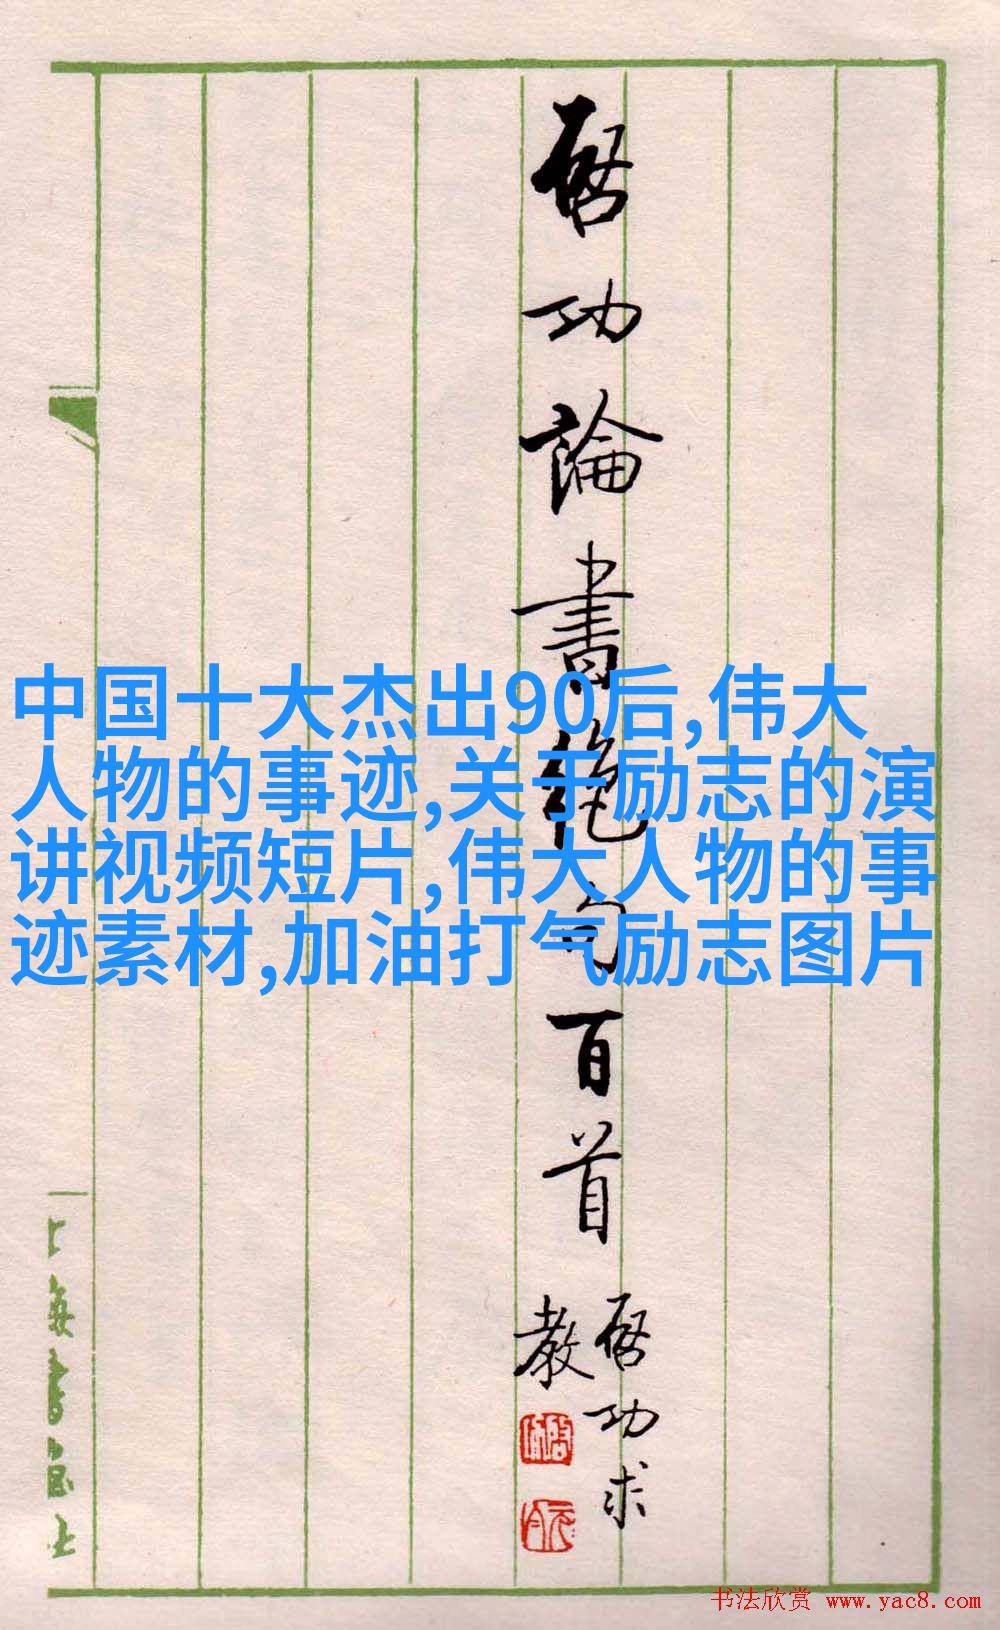 啓功論書絕句百首
啓功求
教
中国十大杰出90后,伟大
人物的事迹,关于励志的演
讲视频短片,伟大人物的事
迹素材,加油打气励志图片
上海書画社
书法欣赏 www.yac8.com